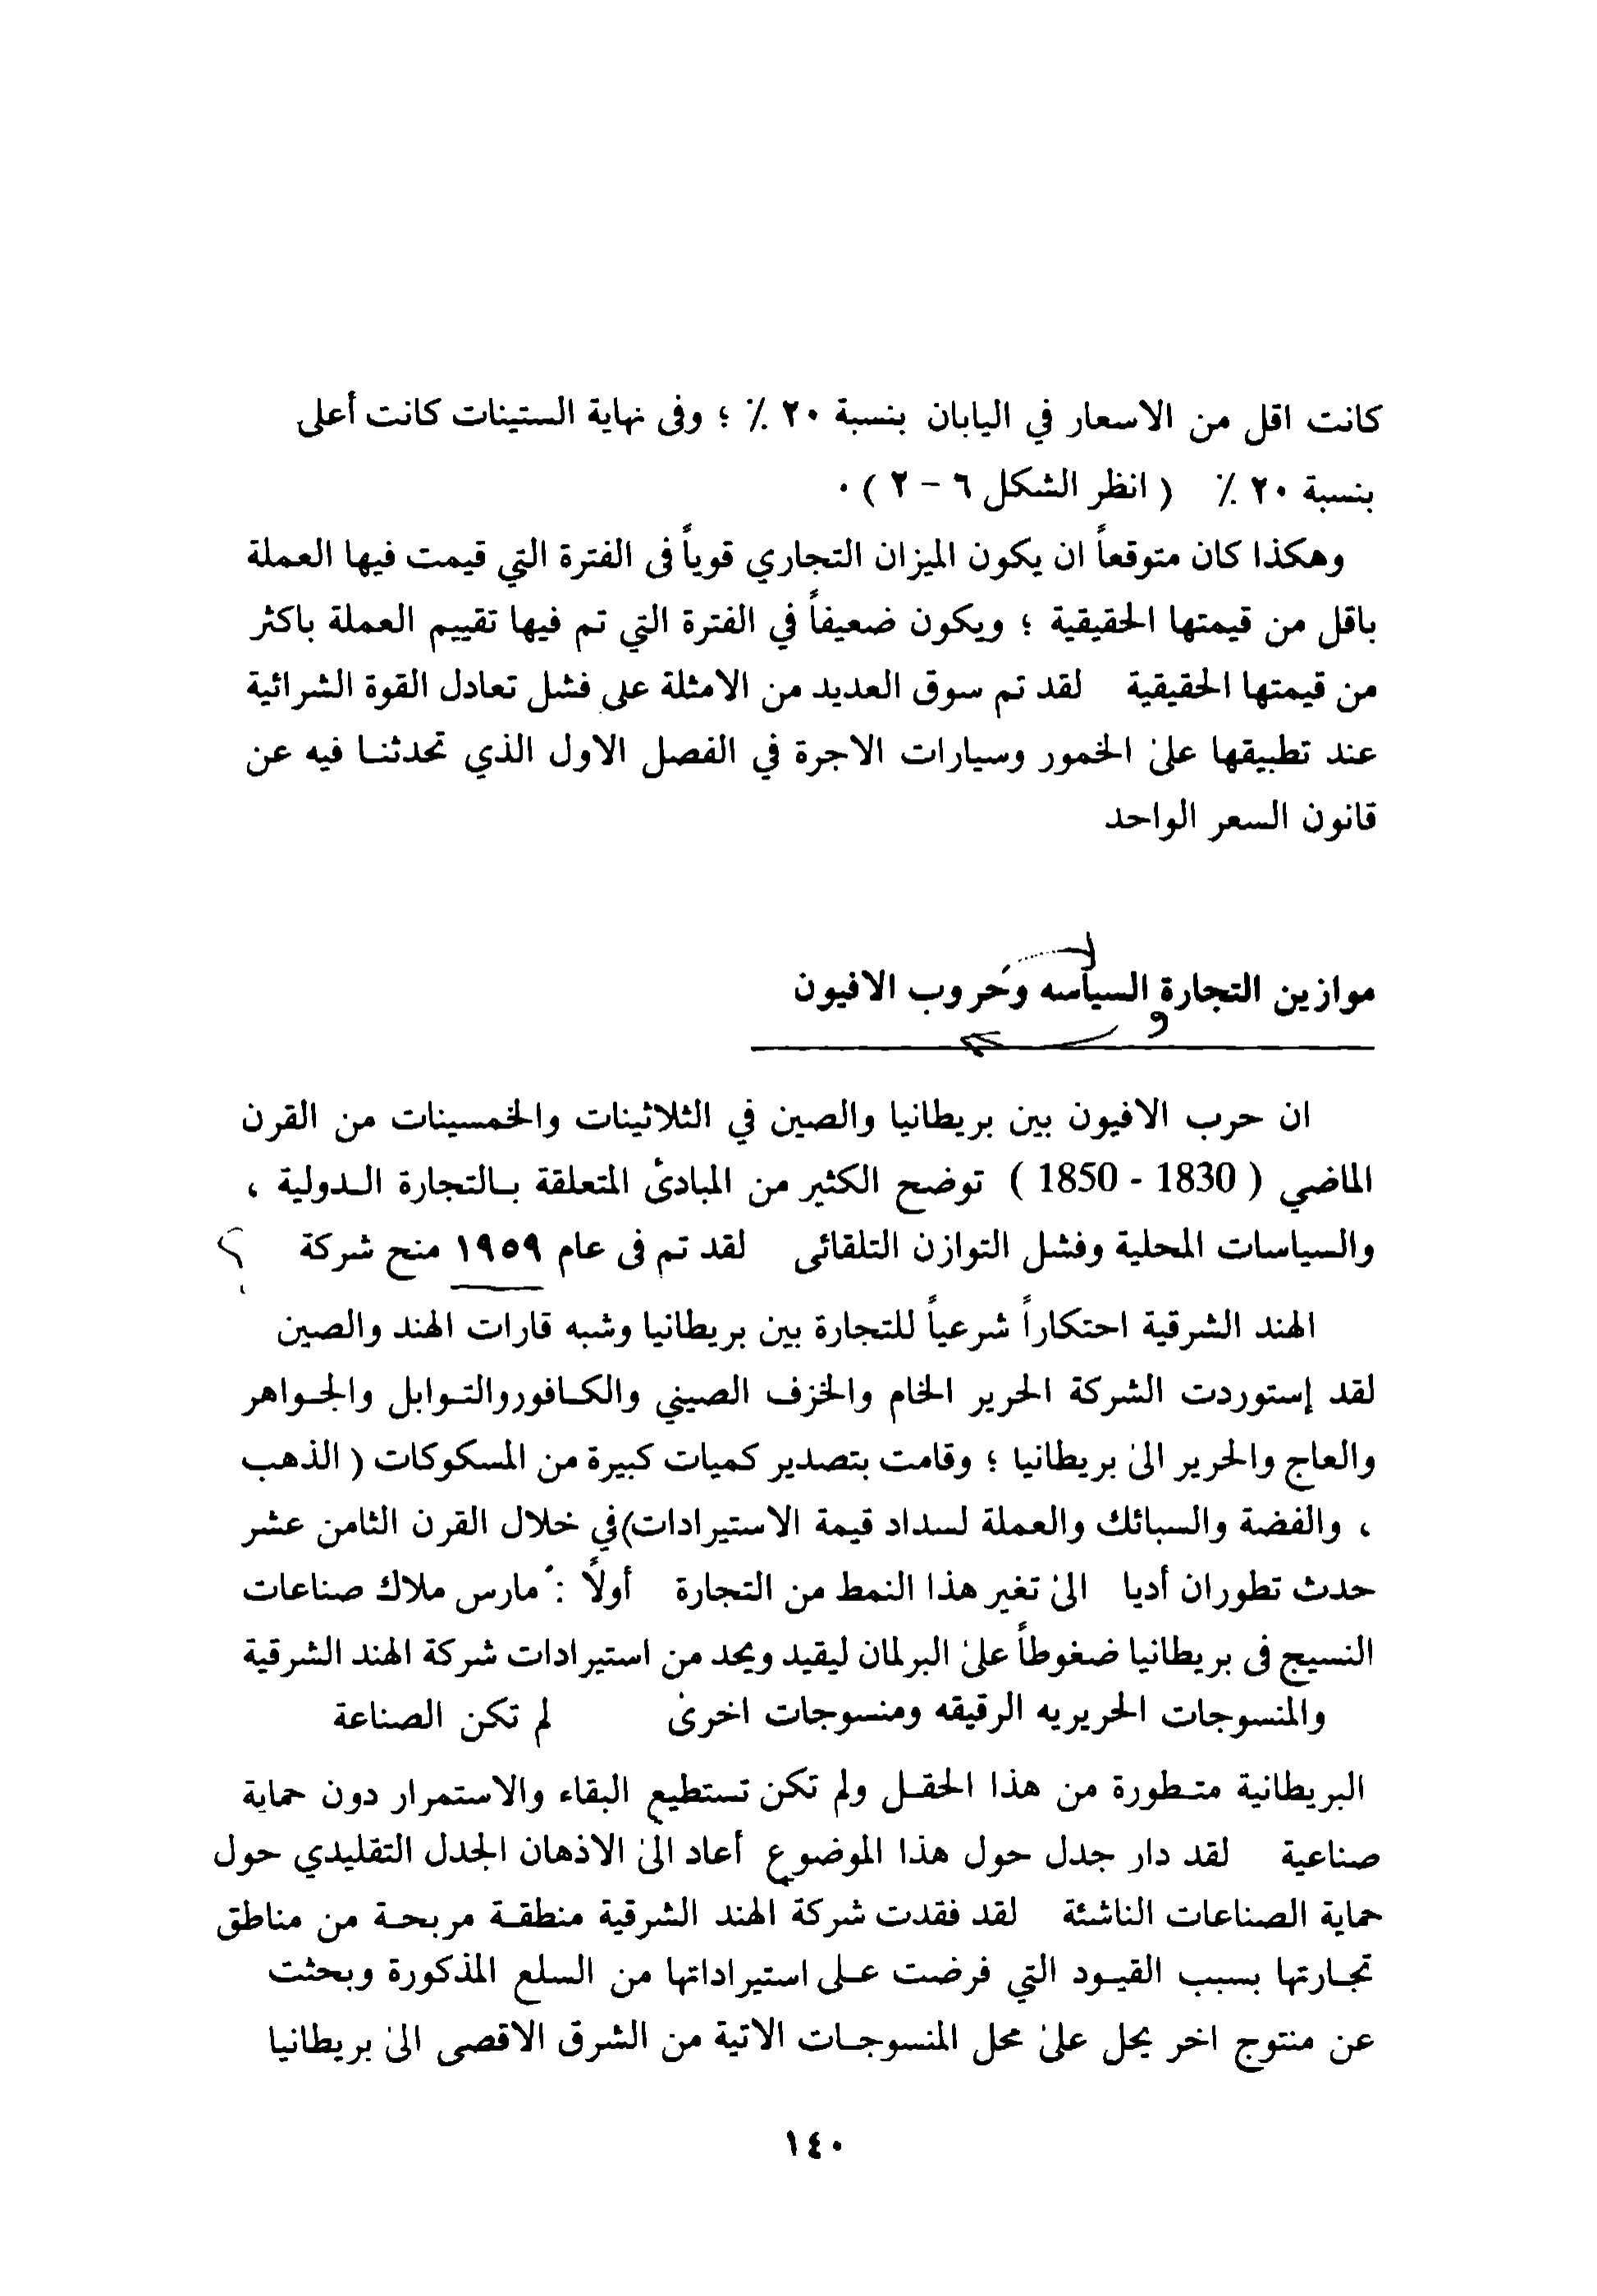 كانت اقل من الاسعار في اليابان بنسبة ٢٠ ٪ ؛ وفى نهاية الستينات كانت أعلى
بنسبة ٢٠ ٪ ( انظر الشكل ٦ - ٢ ) ٠
وهكذا كان متوقعاً ان يكون الميزان التجاري قوياً فى الفترة التي قيمت فيها العملة
باقل من قيمتها الحقيقية ؛ ويكون ضعيفاً في الفترة التي تم فيها تقييم العملة باكثر
من قيمتها الحقيقية لقد تم سوق العديد من الامثلة على فشل تعادل القوة الشرائية
عند تطبيقها على الخمور وسيارات الاجرة في الفصل الاول الذي تحدثنا فيه عن
قانون السعر الواحد
موازين التجارة السياسه وحروب الافيون
و
ان حرب الافيون بين بريطانيا والصين في الثلاثينات والخمسينات من القرن
الماضي ( 1830 - 1850 ) توضح الكثير من المبادئ المتعلقة بالتجارة الدولية ،
والسياسات المحلية وفشل التوازن التلقائى لقد تم فى عام ١٩٥٩ منح شركة ؟
الهند الشرقية احتكاراً شرعياً للتجارة بين بريطانيا وشبه قارات الهند والصين
لقد إستوردت الشركة الحرير الخام والخزف الصيني والكافوروالتوابل والجواهر
والعاج والحرير الى بريطانيا ؛ وقامت بتصدير كميات كبيرة من المسكوكات ( الذهب
، والفضة والسبائك والعملة لسداد قيمة الاستيرادات)في خلال القرن الثامن عشر
حدث تطوران أديا الى تغير هذا النمط من التجارة أولاً : مارس ملاك صناعات
النسيج فى بريطانيا ضغوطاً على البرلمان ليقيد ويحد من استيرادات شركة الهند الشرقية
والمنسوجات الحريريه الرقيقه ومنسوجات اخرى لم تكن الصناعة
البريطانية متطورة من هذا الحقل ولم تكن تستطيع البقاء والاستمرار دون حماية
صناعية لقد دار جدل حول هذا الموضوع أعاد الى الاذهان الجدل التقليدي حول
حماية الصناعات الناشئة لقد فقدت شركة الهند الشرقية منطقة مربحة من مناطق
تجارتها بسبب القيود التي فرضت على استيراداتها من السلع المذكورة وبحثت
عن منتوج اخر يحل على محل المنسوجات الاتية من الشرق الاقصى الى بريطانيا
١٤٠